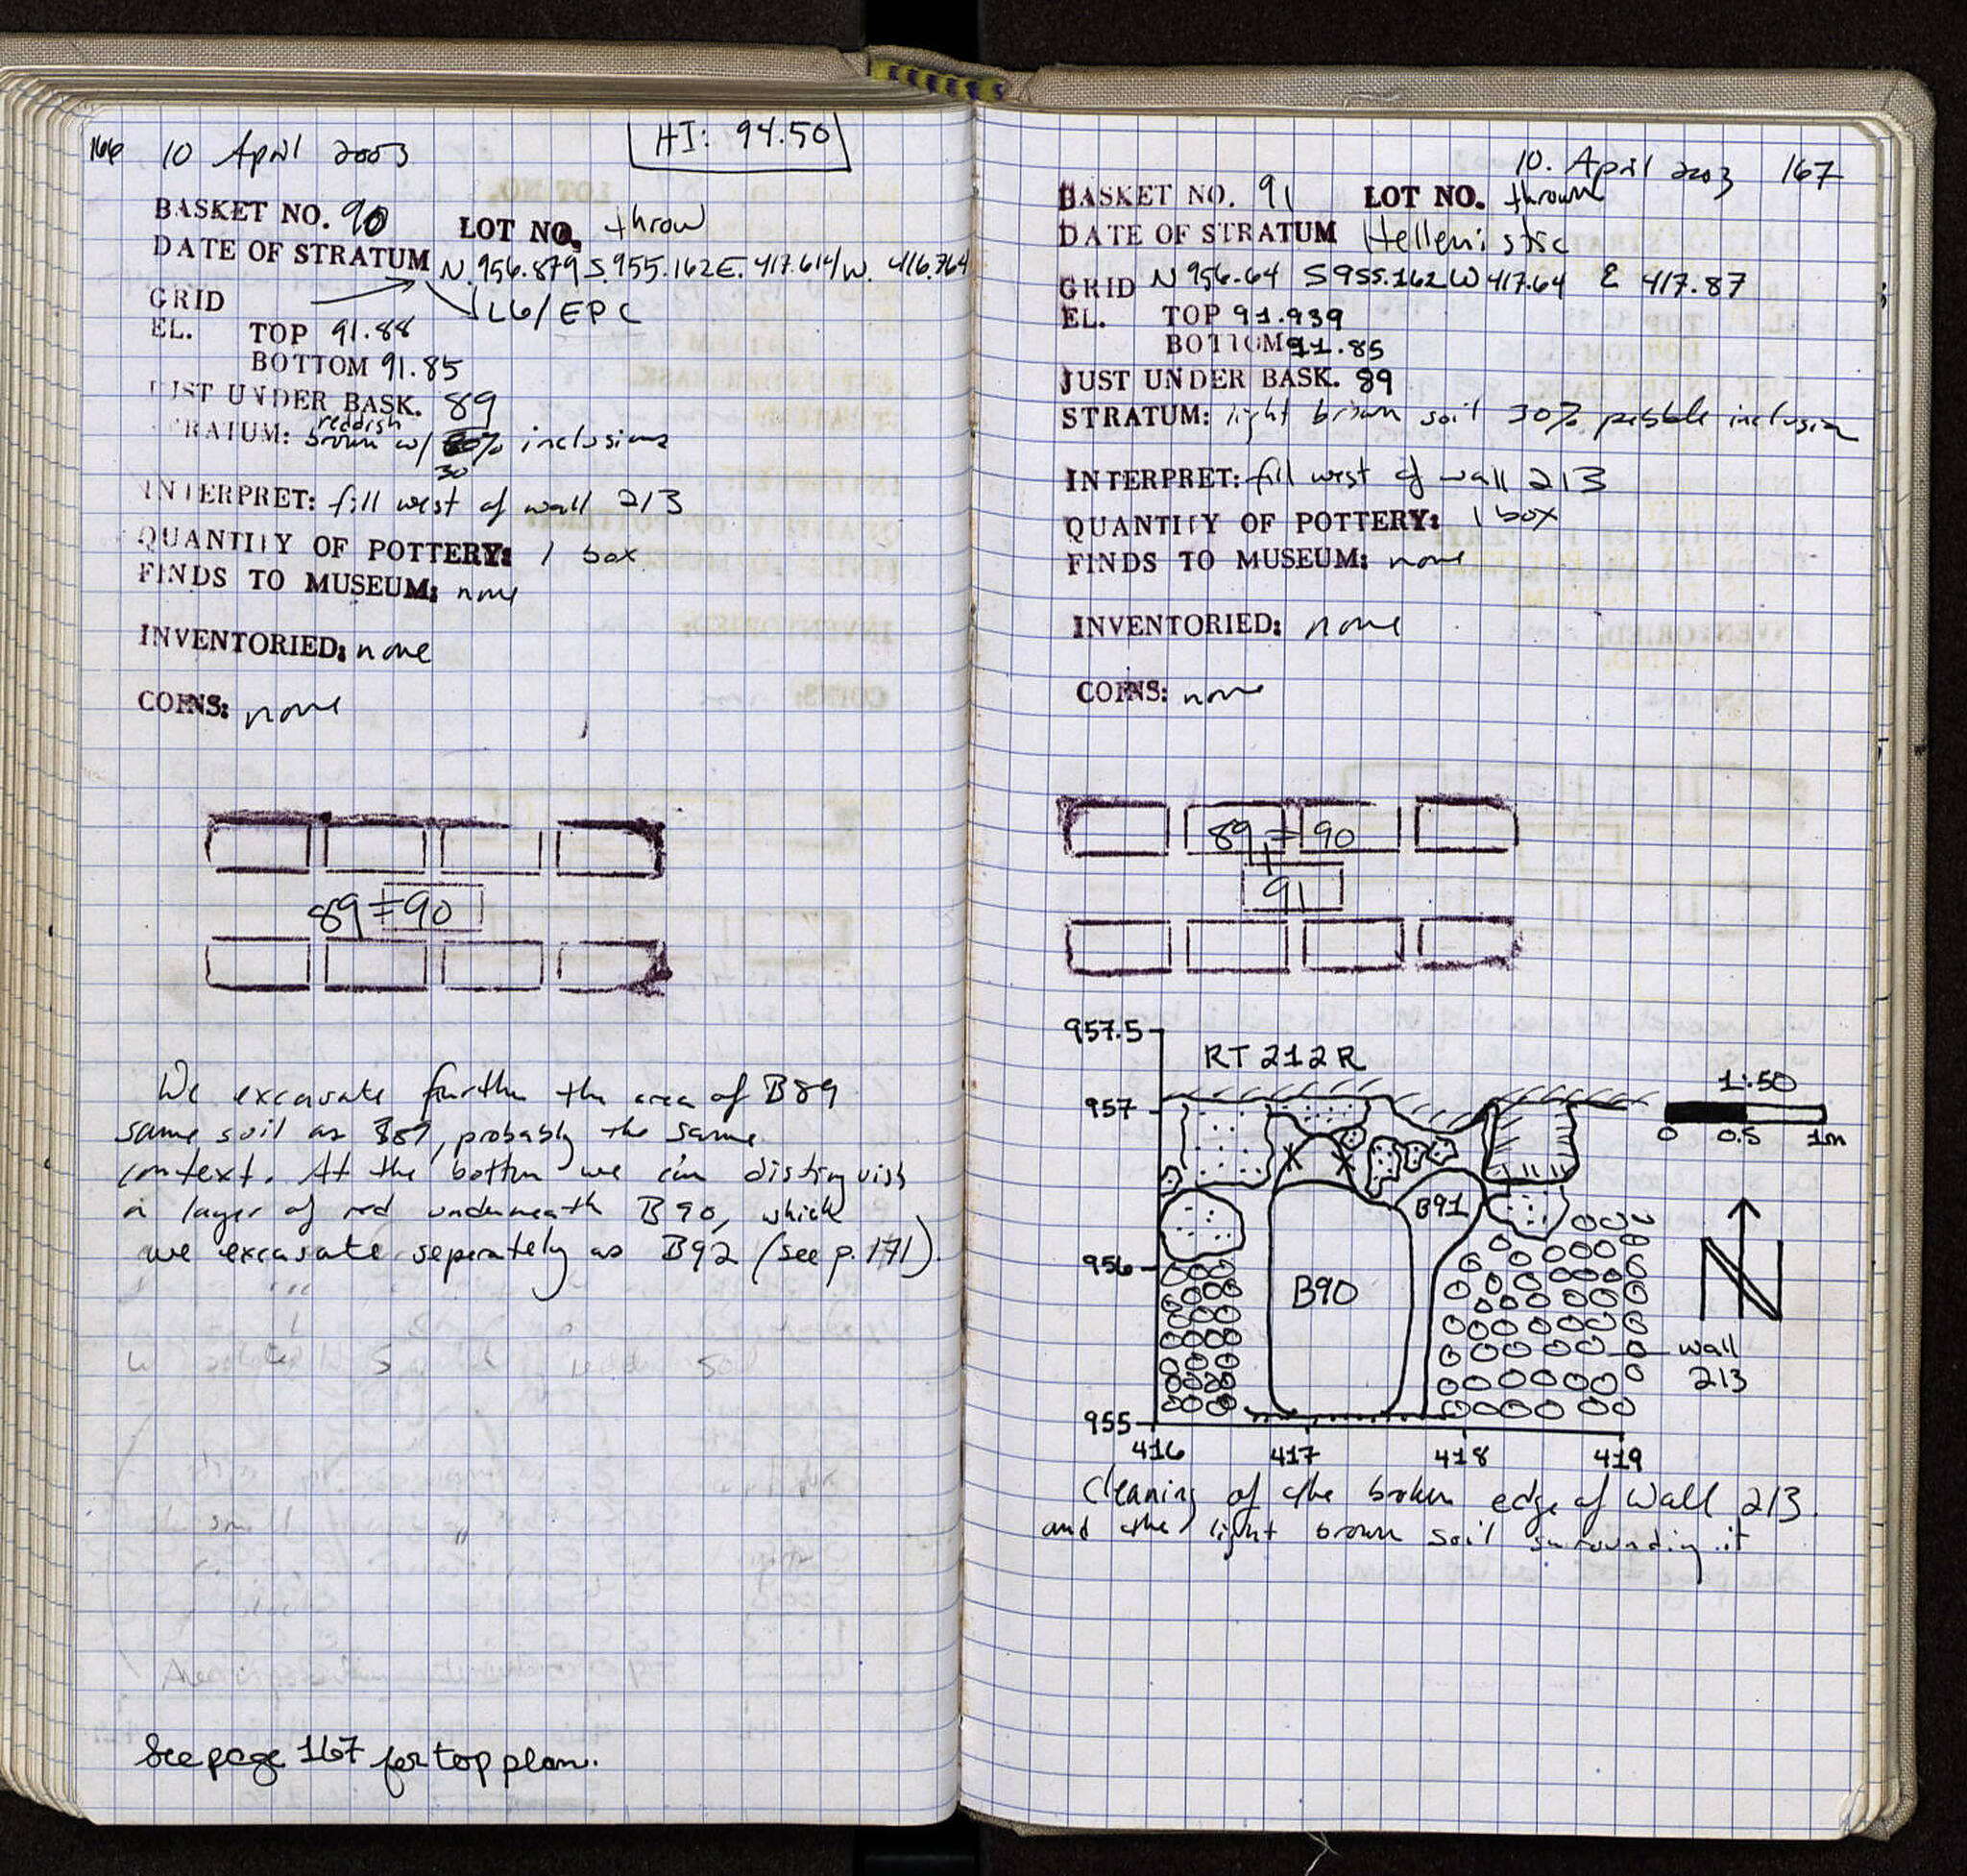 166 10 April 2003
HI: 94.50
BASKET NO. 90 LOT NO. throw
DATE OF STRATUM N. 956.879 S. 955.162 E. 417.614/W. 416.764
GRID L6/EPC
EL. TOP 91.88
BOTTOM 91.85
JUST UNDER BASK. 89
STRATUM: reddish brown w/ 30% inclusions
INTERPRET: fill west of wall 213
QUANTITY OF POTTERY: 1 box
FINDS TO MUSEUM: none
INVENTORIED: none
COINS: none
89 = 90
We excavate further the area of B89
same soil as B89, probably the same
context. At the bottom we can distinguish
a layer of red underneath B90, which
we excavate seperately as B92 (see p. 171).
See page 167 for top plan.
10. April 2003 167
BASKET NO. 91 LOT NO. thrown
DATE OF STRATUM Hellenistic
GRID N 956.64 S 955.162 W 417.64 E 417.87
EL. TOP 91.939
BOTTOM 91.85
JUST UNDER BASK. 89
STRATUM: light brown soil 30% pebble inclusion
INTERPRET: fill west of wall 213
QUANTITY OF POTTERY: 1 box
FINDS TO MUSEUM: none
INVENTORIED: none
COINS: none
89 = 90
91
957.5
RT 212 R
1:50
957
0 0.5 1m
B91
956
B90
N
wall
213
955
416 417 418 419
Cleaning of the broken edge of Wall 213.
and the light brown soil surrounding it